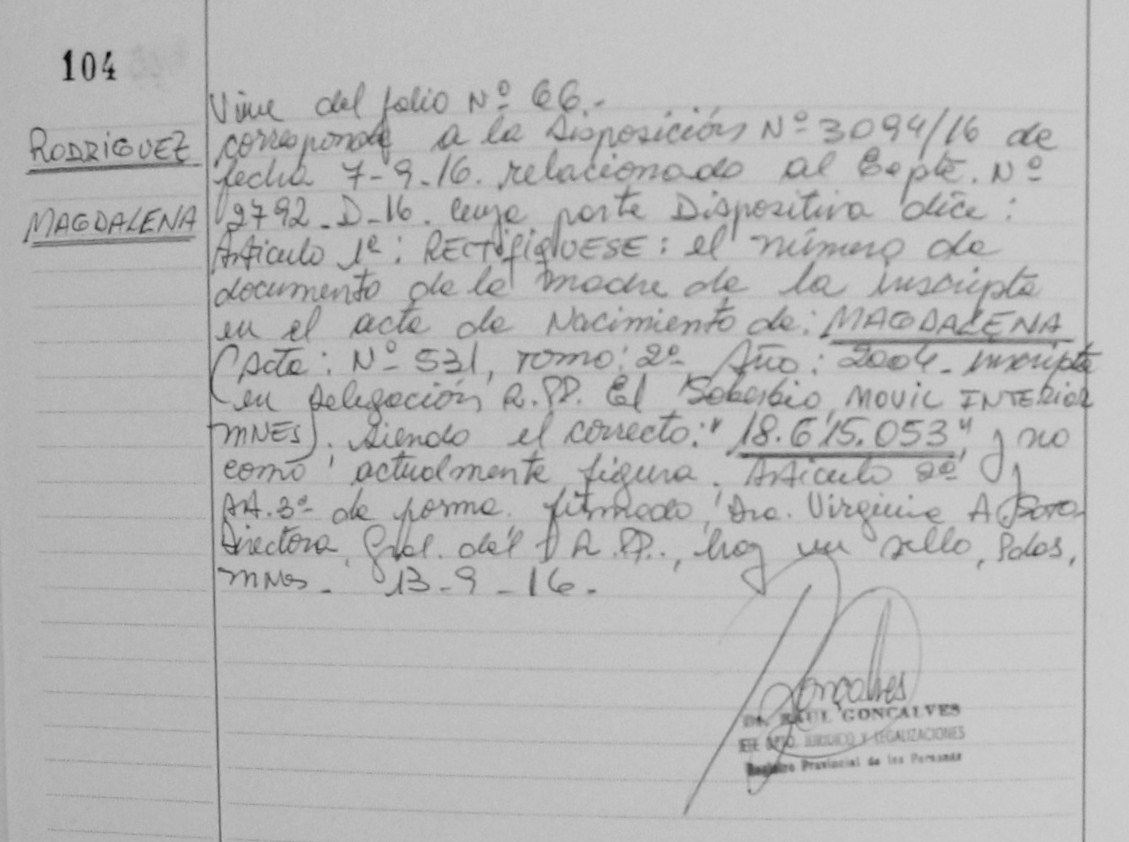 104
RODRIGUEZ
MAGDALENA
Viene del folio Nº 66.-
corresponde a la Disposición Nº 3094/16 de
fecha 7-9-16. relacionado al Expte. Nº
9792-D-16. Cuya parte Dispositiva dice:
Artículo 1º: RECTIFIQUESE: el número de
documento de la madre de la inscripta
en el acta de Nacimiento de: MAGDALENA
(Acta: Nº 531, Tomo: 2º Año: 2004- inscripta
en Delegación R.PP. El Soberbio, MOVIL INTERIOR
MNES). Siendo el correcto: "18.615.053" y no
como actualmente figura. Artículo 2º y
Art. 3º de forma. firmado, Dra. Virginia A.
Directora Gral. del R.PP., hay un sello, Pdas,
MNes. 13-9-16.
Goncalves
Dr. RAUL GONCALVES
JEFE DPTO. JURIDICO Y LEGALIZACIONES
Registro Provincial de las Personas